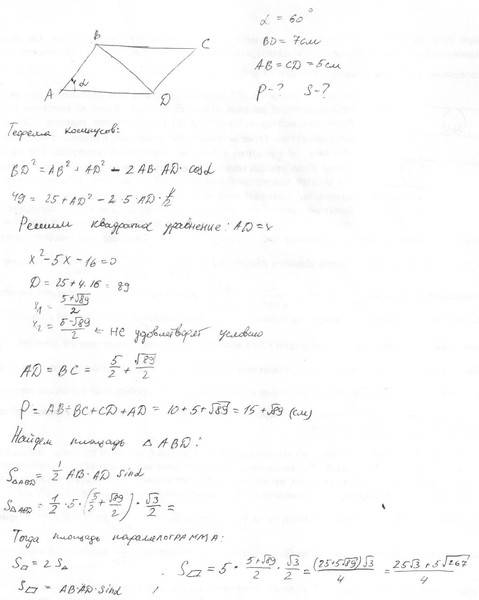 α = 60°
BD = 7см
AB = CD = 5см
P-? S-?
B C
A α D
Теорема косинусов:
BD² = AB² + AD² - 2AB·AD·cosα
49 = 25 + AD² - 2·5·AD·1/2
Решим квадратное уравнение: AD = x
x² - 5x - 16 = 0
D = 25 + 4·16 = 89
x₁ = (5+√89)/2
x₂ = (5-√89)/2 ← не удовлетворяет условию
AD = BC = 5/2 + √89/2
P = AB+BC+CD+AD = 10+5+√89 = 15+√89 (см)
Найдем площадь △ABD:
S△ABD = 1/2 AB·AD sinα
S△ABD = 1/2·5·(5/2+√89/2)·√3/2 =
Тогда площадь паралелограмма:
S▱ = 2S△
S▱ = AB·AD·sinα
S▱ = 5·(5+√89)/2·√3/2 = (25+5√89)√3/4 = (25√3+5√267)/4